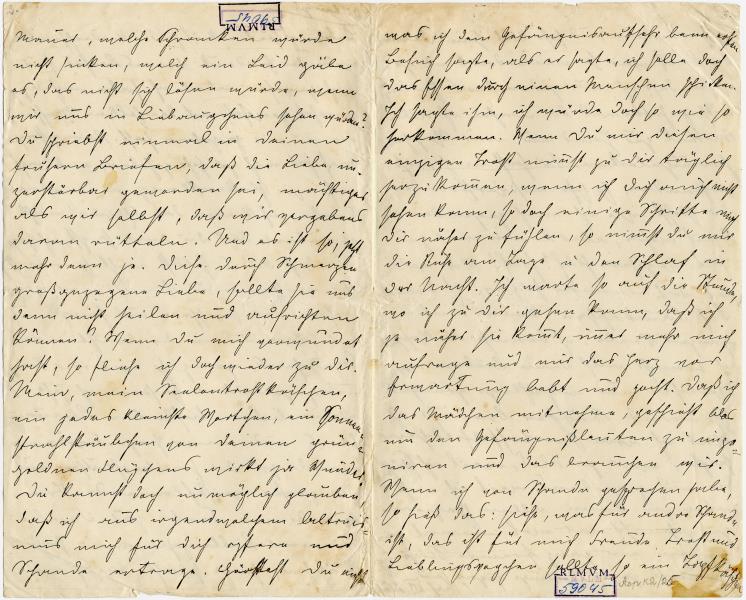 Mauer, welche Schranken würde
nicht sinken, welch ein Leid gäbe
es, das nicht sich lösen würde, wenn
wir uns in Liebaugchens sehen würden?
Du schriebst einmal in deinen
frühern Briefen, daß die Liebe un-
zerstörbar geworden sei, mächtiger
als wir selbst, daß wir vergebens
daran rütteln. Und es ist so, jetzt
mehr denn je. Diese durch Schmerzen
großgezogene Liebe, sollte sie uns
denn nicht heilen und aufrichten
können? Wenn du mich verwundet
hast, so fliehe ich doch wieder zu dir.
Mein, mein Seelentrost
ein jedes kleinste Wörtchen, ein Sonnen-
strahlstäubchen von deinen grün-
goldnen Äugchens wirkt ja Wunder.
Du kannst doch unmöglich glauben
daß ich aus irgendwelchem Altruis-
mus mich für dich opfern und
Schande ertrage. Verstehst Du nicht
was ich dem Gefängnisaufseher beim ersten
Besuch sagte, als er sagte, ich solle doch
das Essen durch einen Menschen schicken.
Ich sagte ihm, ich würde doch so wie so
herkommen. Wenn Du mir diesen
einzigen Trost nimmst zu dir täglich
herzukommen, wenn ich dich auch nicht
sehen kann, so doch einige Schritte mich
dir näher zu fühlen, so nimmst du mir
die Ruhe am Tage u den Schlaf in
der Nacht. Ich warte so auf die Stunde,
wo ich zu dir gehen kann, daß ich
je näher sie kommt, immer mehr mich
aufrege und mir das Herz vor
Erwartung bebt und pocht. Daß ich
das Mädchen mitnehme, geschieht blos
um den Gefängnißleuten zu impo-
niren und das brauchen wir.
Wenn ich von Schande gesprochen habe,
so hieß das: siehe, was für andre Schande
ist, das ist für mich Freude, Trost und
Lieblings sollte so ein
RLMVM
59045
RLMVM
59045